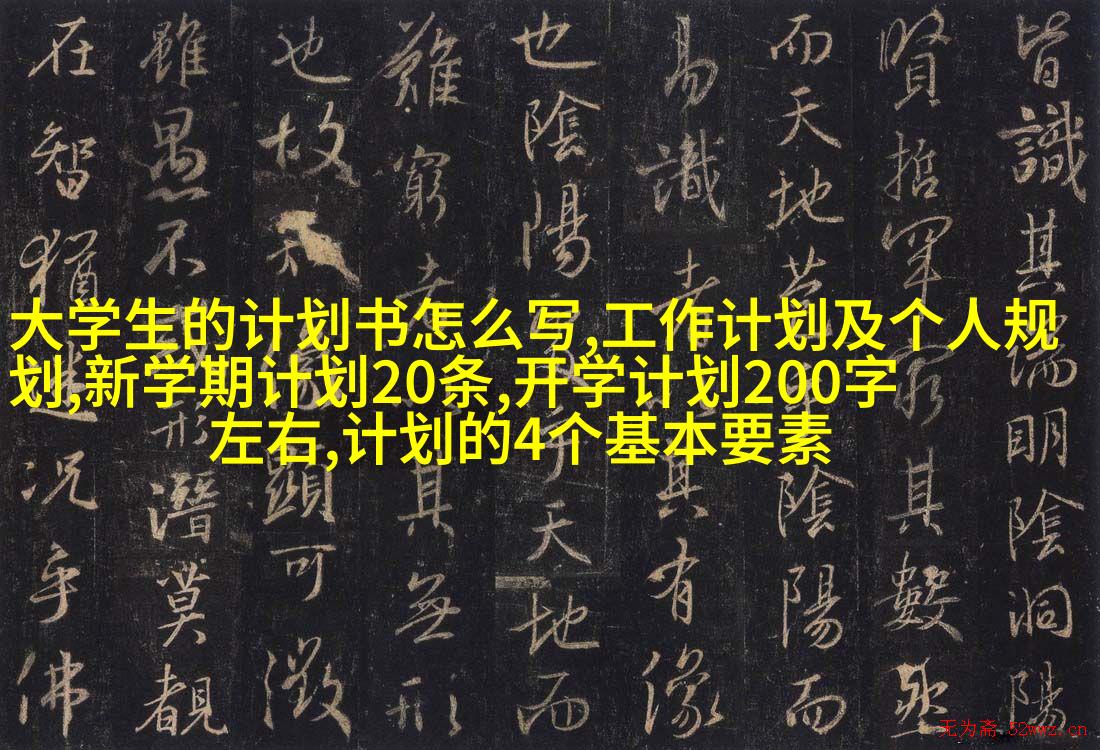 大学生的计划书怎么写,工作计划及个人规
划,新学期计划20条,开学计划200字
左右,计划的4个基本要素
皆識其端明陰洞陽
賢哲罕窮其數
而天地苞陰陽而
易識者其有像
也陰陽乎天地而
難窮者其無形
也故知顯可徵
雖愚不形潛莫覩
在智猶迷況乎佛
无为斋 52wwz.cn